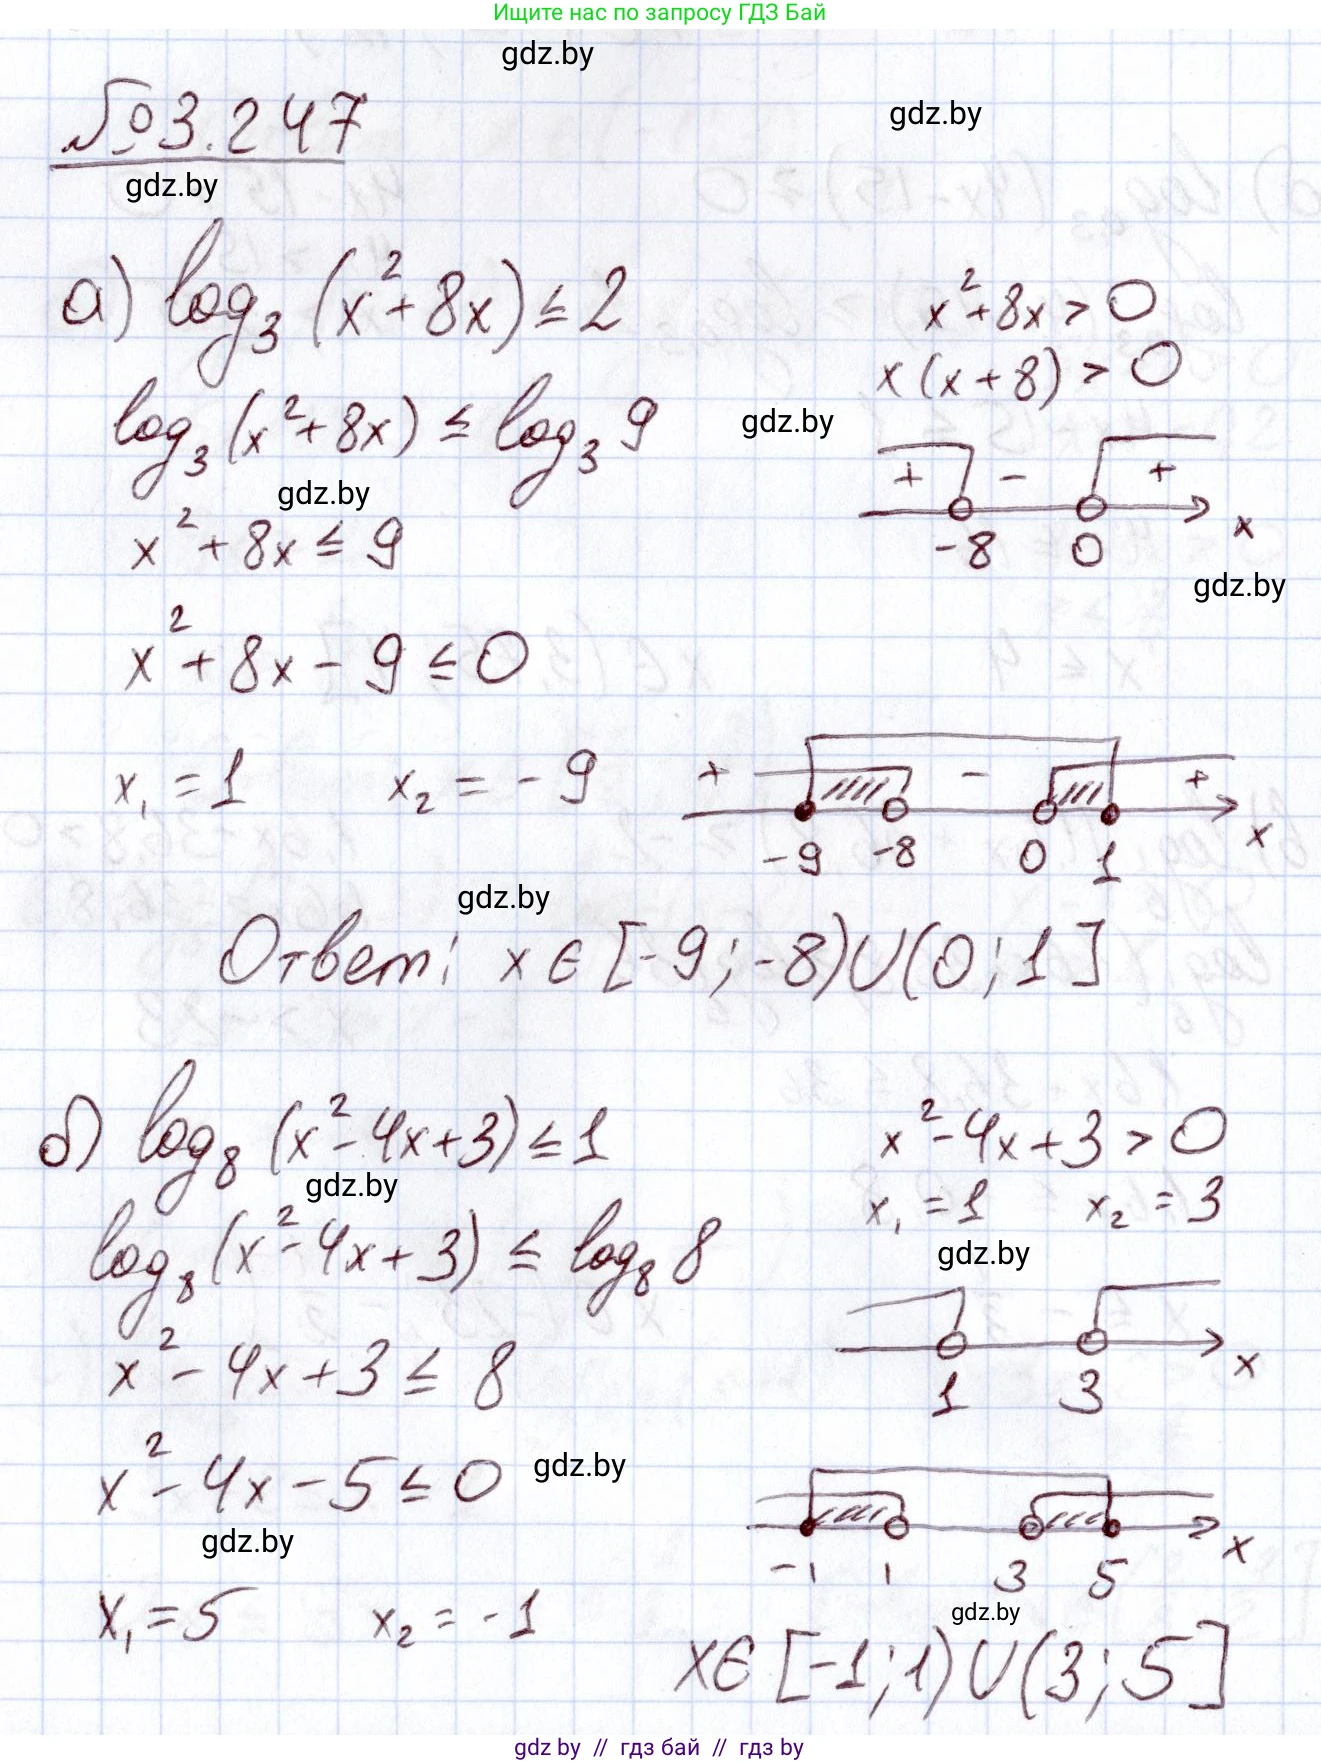 Ищите нас по запросу ГДЗ Бай
gdz.by
№3.247
gdz.by
gdz.by
а) log₃(x²+8x)≤2
x²+8x>0
x(x+8)>0
log₃(x²+8x)≤log₃9
gdz.by
+ - +
gdz.by
-8 0 x
x²+8x≤9
gdz.by
x²+8x-9≤0
x₁=1 x₂=-9
+ - +
-9 -8 0 1 x
gdz.by
Ответ: x∈[-9;-8)∪(0;1]
б) log₈(x²-4x+3)≤1
x²-4x+3>0
gdz.by
x₁=1 x₂=3
log₈(x²-4x+3)≤log₈8
gdz.by
1 3 x
x²-4x+3≤8
x²-4x-5≤0
gdz.by
gdz.by
-1 1 3 5 x
x₁=5 x₂=-1
gdz.by
x∈[-1;1)∪(3;5]
gdz by // гдз бай // гдз by